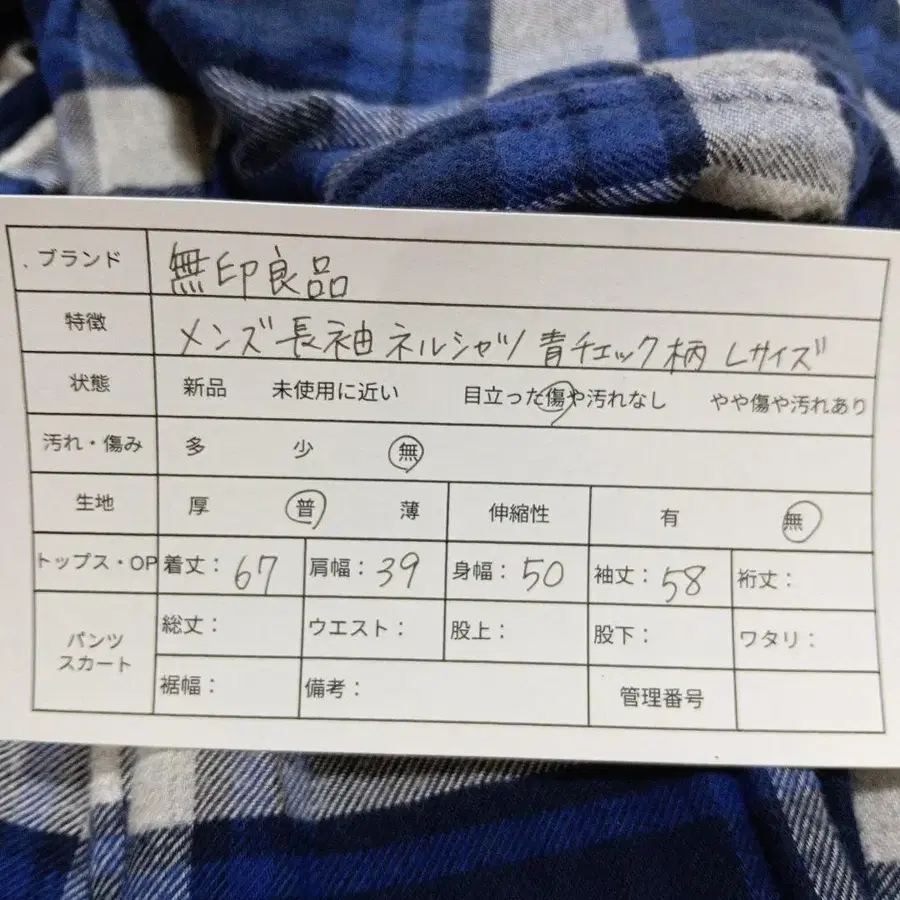 ブランド 無印良品
特徴 メンズ 長袖 ネルシャツ 青チェック柄 Lサイズ
状態 新品 未使用に近い 目立った傷や汚れなし やや傷や汚れあり
汚れ・傷み 多 少 無
生地 厚 普 薄 伸縮性 有 無
トップス・OP 着丈：67 肩幅：39 身幅：50 袖丈：58 裄丈：
パンツ
スカート
総丈： ウエスト： 股上： 股下： ワタリ：
裾幅： 備考： 管理番号